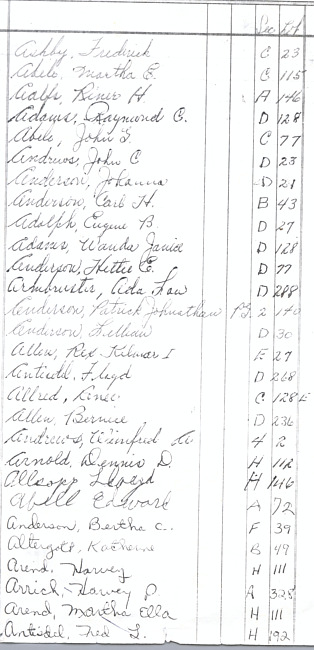 Sec Lot
Ashby, Frederick C 23
Abele, Martha E. C 115
Aalfs, Biner H. A 146
Adams, Raymond C. D 128
Abele, John C 77
Andrews, John C D 23
Anderson, Johanna D 21
Anderson, Carl H. B 43
Adolph, Eugene B. D 27
Adams, Wanda Janice D 128
Anderson, Hettie E. D 77
Armbruster, Ada Faw D 288
Anderson, Patrick Johnathan 2 140
Anderson, Lillian D 30
Allen, Rex Kilmar I E 27
Antisdel, Floyd D 268
Allred, C 128 E
Allen, Bernice D 236
Andrews, Winifred A. 4 2
Arnold, Dennis D. H 112
Allsopp Lloyd H 146
Abell Edward A 72
Anderson, Bertha C. F 39
Altergott, Katherine B 49
Arend, Harvey H 111
Arrick, Harvey P. A 325
Arend, Martha Ella H 111
Antisdel, Fred L. H 192